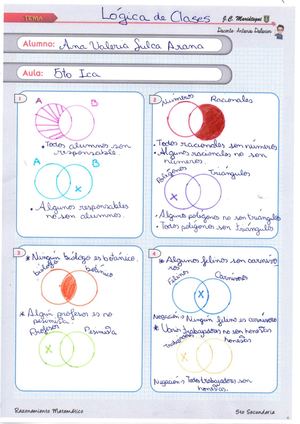 TEMA
Lógica de Clases
J.C. Mariátegui
Alumna: Ana Valeria Sulca Arana
Aula: 5to Ica
1
A B
• Todos alumnos son
responsable
A B
• Algunos responsables
no son alumnos.
2
Números Racionales
• Todos racionales son números
• Algunos racionales no son
números.
Polígonos Triangulos
• Algunos polígonos no son triangulos
• Todos polígonos son triangulos
3
* Ningún biólogo es botánico.
biólogo botánico
* Algún profesor es no
pesimista.
Profesor
4
* Algunos felino son carnívoro
Felino Carnívoros
Negación: Ningún felino es carnívoro
* Varios trabajadores no son honestos
Trabajadores honestos
Negación: Todo trabajadores son
honestos.
Razonamiento Matemático
5to Secundaria